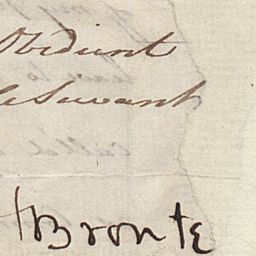 Obedient
le Servant
Bronte